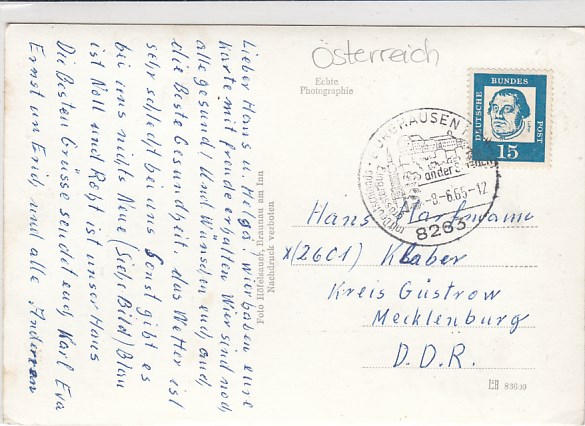 Österreich
Echte
Photographie
Lieber Hans u. Helga, wir haben eure
Karte mit freude erhalten Wir sind noch
alle gesund! Und Wünschen euch auch
die Beste Gesundheit, das Wetter ist
sehr schlecht bei uns Sonst gibt es
bei uns nichts Neue (Siehe Bild) Blau
ist Noll und Roht ist unser Haus
Die Besten Grüsse sendet euch Karl Eva
Ernst un Erich und alle Anderen
Foto Höfelsauer, Braunau am Inn
Nachdruck verboten
DEUTSCHE
BUNDES
POST
15
BURGHAUSEN
an der Salzach
-9-6.65-12
8263
Hans Hartmann
x(2601) Klaber
Kreis Güstrow
Mecklenburg
D.D.R.
83600